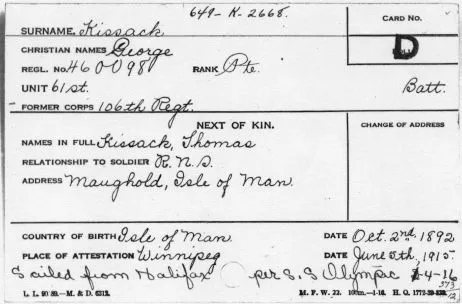 649-K-2668.
SURNAME. Kissack
CARD NO.
CHRISTIAN NAMES George
REGL. No. 460098 RANK Pte.
D
UNIT 61st. Batt.
FORMER CORPS 106th Regt.
NEXT OF KIN.
CHANGE OF ADDRESS
NAMES IN FULL Kissack, Thomas
RELATIONSHIP TO SOLDIER R.N.S.
ADDRESS Maughold, Isle of Man
COUNTRY OF BIRTH Isle of Man. DATE Oct. 2nd, 1892
PLACE OF ATTESTATION Winnipeg DATE June 5th, 1915
Sailed from Halifax per S.S Olympic 1-4-16
L. L. 90 89.—M. & D. 6312. M. F. W. 22. 100m.—1-16. H. Q. 1772-39-